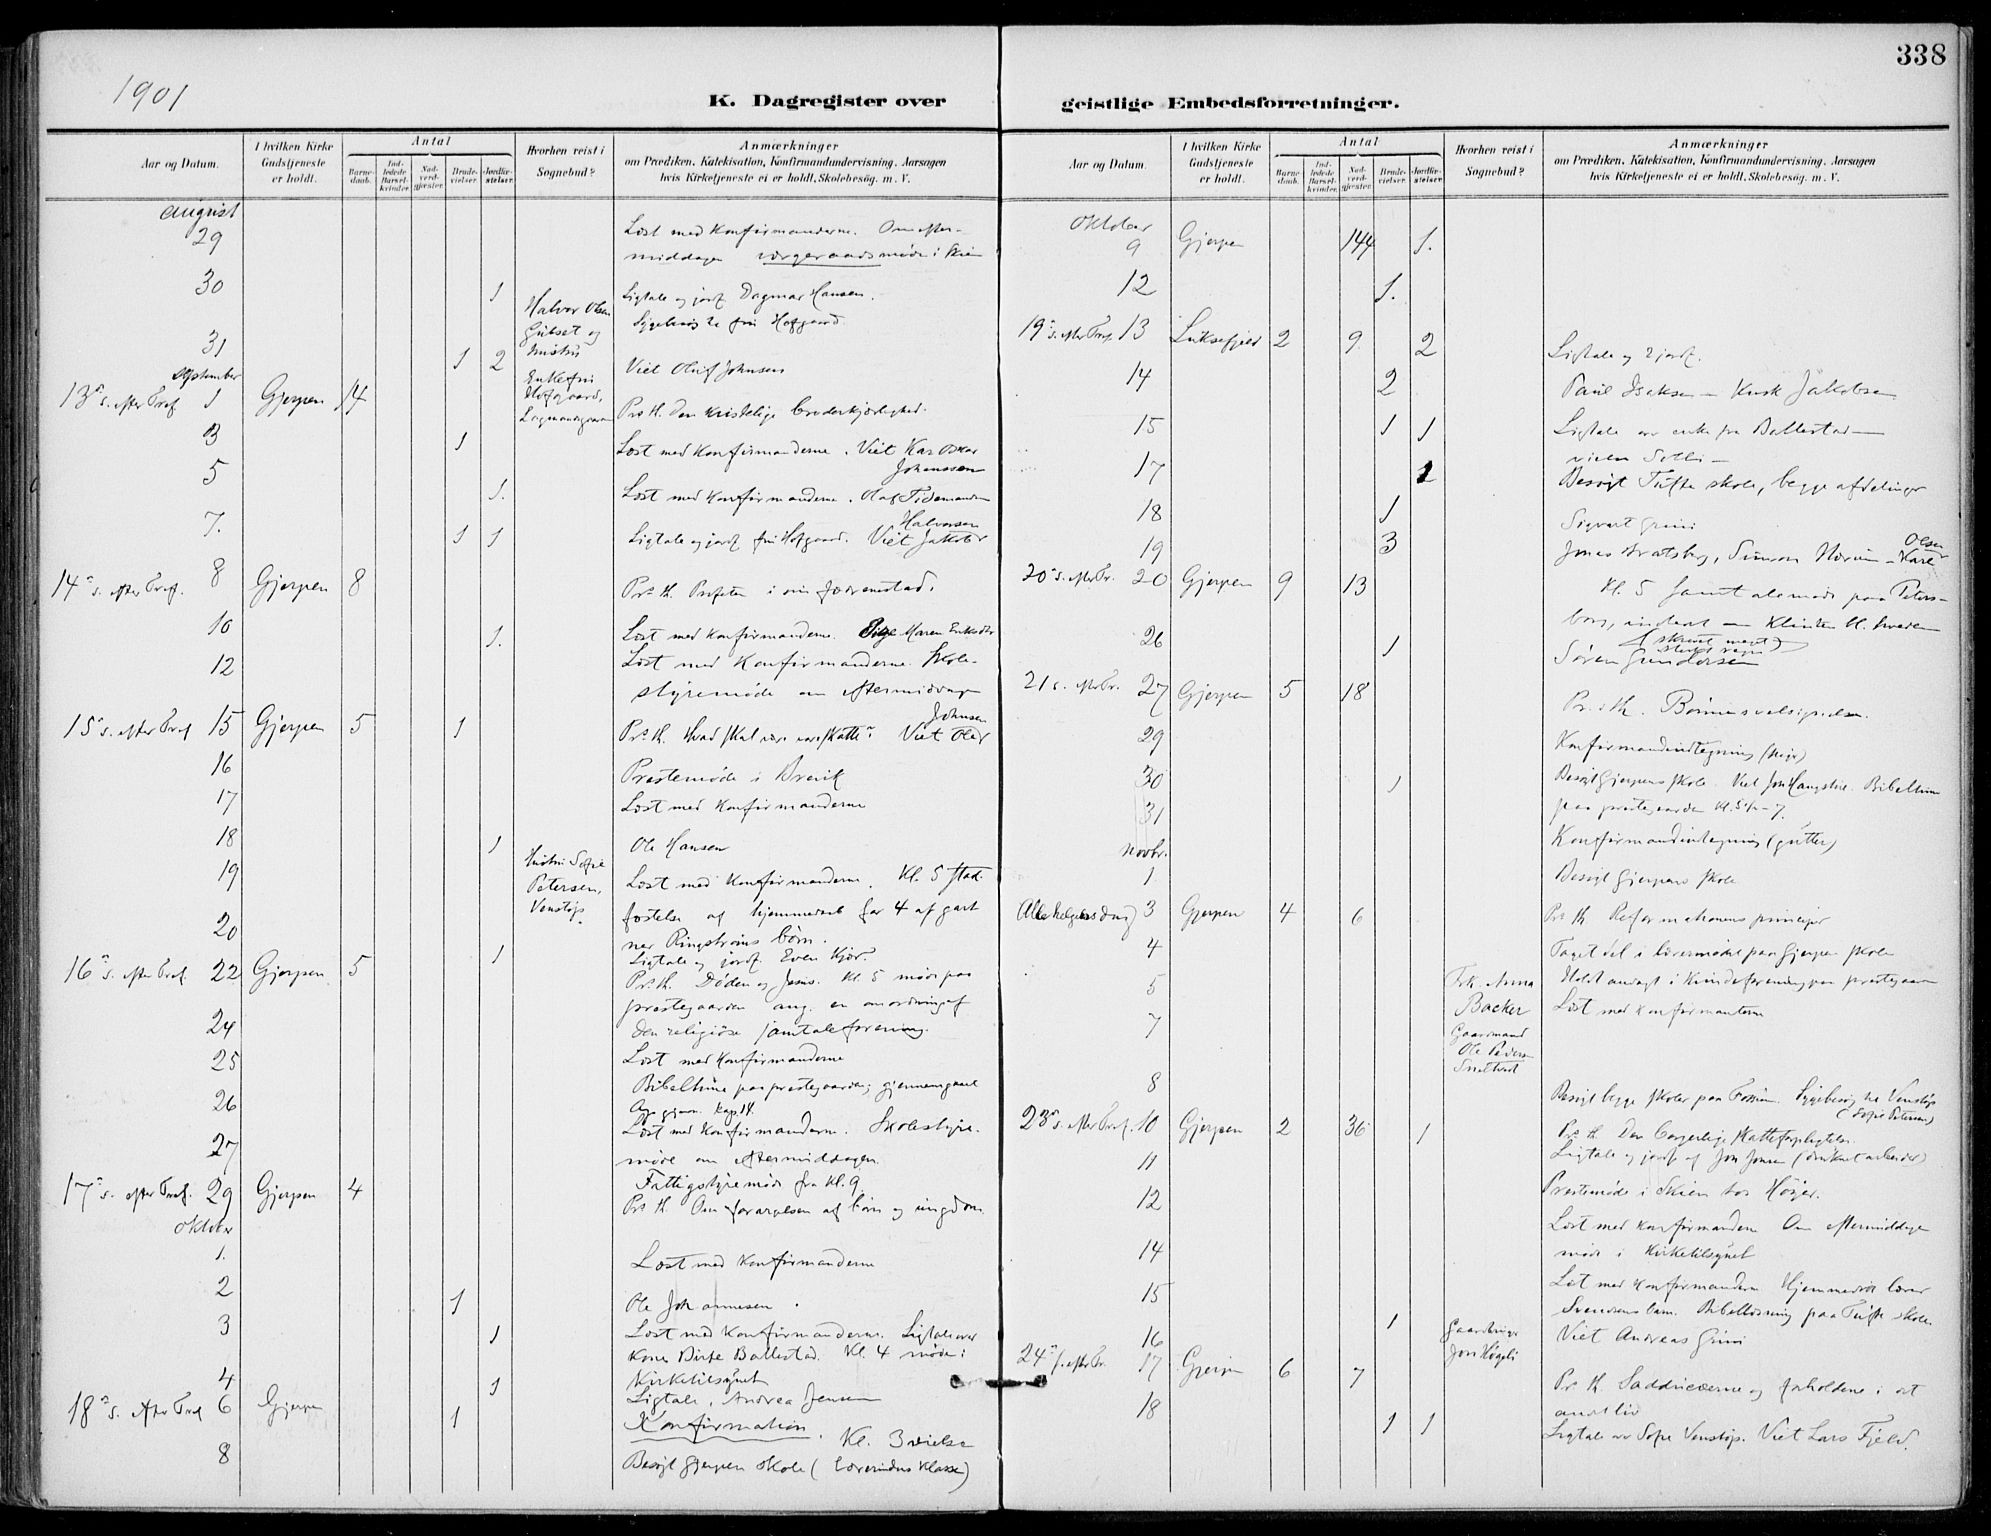 338
1901
K. Dagregister over
geistlige Embedsforretninger.
Aar og Datum.
I hvilken Kirke Gudstjeneste er holdt.
Antal
Barnedaab.
Indledede Barselkvinder.
Nadverdgjester.
Brudevielser.
Jordfæstelser.
Hvorhen reist i Sognebud?
Anmærkninger
om Prædiken, Katekisation, Konfirmandundervisning, Aarsagen
hvis Kirketjeneste ei er holdt, Skolebesøg, m. V.
august
29 Læst med konfirmanderne. Om efter-
middagen værgeraadsmøde i Skien
30 1 Ligtale og jordf Dagmar Hansen.
Halvor Olsen
Sygebesøg fru Hofgaard
og
hustru
31 1 2 Viet Oluf Johnsen
september
Enkefru
Hofgaard,
13 s. efter Tref. 1 Gjerpen 14 Pr. th. Den kristelige broderkjærlighed.
3 1 Læst med konfirmanderne. Viet Karl Oskar
Johanssen
5 1. Læst med konfirmanderne. Olaf Tidemandsen
7. 1 1 Ligtale og jordf fru Hofgaard. Viet Jakob
Halvorsen
14 s. efter Tref. 8 Gjerpen 8 Pr. th. Profeten i sin fædrenestad.
10 1. Læst med konfirmanderne. Maren
12 Læst med konfirmanderne. Skole-
styremøde om eftermiddagen
15 s. efter Tref 15 Gjerpen 5 1 Pr. th. Hvad skal være vore skatte? Viet Ole
Johnsen
16 Prestemøde i Brevik
17 Læst med konfirmanderne
18 1 Ole Hansen
Hustru Sofie
Petersen,
Venstøp.
19 Læst med konfirmanderne. Kl. 5 stad-
fæstelse af hjemmedaab for 4 af gart
ner Ringstrøms børn.
20 1 Ligtale og jordf Even Kjør
16 s. efter Tref. 22 Gjerpen 5 Pr. th. Døden og Jesus. Kl 5 møde paa
prestegaarden ang. en anordning af
den religiøse samtaleforening.
24 Læst med konfirmanderne
25 Bibeltime paa prestegaarden, gjennemgaaet
Ap. gjern. Kap. 14.
26 Læst med konfirmanderne. Skolestyre-
møde om eftermiddagen.
27 Fattigstyremøde fra kl. 9
17 s. efter Tref. 29 Gjerpen 4 Pr. th. Om forargelsen af børn og ungdom
oktober
1. Læst med konfirmanderne
2 1 Ole Johannesen.
3 1 Læst med konfirmanderne. Ligtale over
kone Birte Ballestad. Kl. 4 møde i
Kirketilsynet
4 1 Ligtale, Andrea Jensen
18 s. efter Tref 6 Gjerpen 1 Konfirmation. Kl. 3 vielse
8 Besøgt Gjerpen skole (lærerindens klasse)
Aar og Datum.
I hvilken Kirke Gudstjeneste er holdt.
Antal
Barnedaab.
Indledede Barselkvinder.
Nadverdgjester.
Brudevielser.
Jordfæstelser.
Hvorhen reist i Sognebud?
Anmærkninger
om Prædiken, Katekisation, Konfirmandundervisning, Aarsagen
hvis Kirketjeneste ei er holdt, Skolebesøg, m. V.
oktober
9 Gjerpen 144 1.
12 1.
19 s. efter Tref. 13 Luksefjeld 2 9 2 Ligtale og 2 jordf.
14 2 Paul Isaksen – Jakobsen
15 1 1 Ligtale over enke fra Ballestad –
17 1 Besøgt Tufte skole, begge afdelinger
18 1 Sigvart Grini
19 3 Jonas Bratsberg, Simon – Karl
Olsen
20 s. efter Tr. 20 Gjerpen 9 13 Kl. 5 samtalemøde paa Peters-
borg,
26 1 Søren Gundersen
21 s. efter Tr. 27 Gjerpen 5 18 Pr. th. Børnenes velsignelse.
29 Konfirmandindtegning (piger)
30 1 Besøgt Gjerpens skole. Viet Jon Bibeltime
paa prestegaarden kl. 5½–7.
31 Konfirmandindtegning (gutter)
Novbr.
1 Besøgt Gjerpens skole
Allehelgensdag 3 Gjerpen 4 6 Pr. th. Reformationens principer
4 Taget del i lærermødet paa Gjerpen skole
5 Frk. Anna
Backer
Holdt andagt i kvindeforening paa prestegaarden
7 Læst med konfirmanterne
Gaardmand
Ole Pedersen
8 Besøgt begge skoler paa Fossum. Sygebesøg Venstøp
(Sofie Petersen)
23 s. efter Tref. 10 Gjerpen 2 36 1 Pr. th. Den borgerlige skattepligt
11 Ligtale og jordf af Jon Jensen
Prestemøde i Skien hos Høyer.
12 Læst med konfirmanderne Om eftermiddagen
møde i Kirketilsynet
14 Læst med konfirmanderne Hjemmedøbt lærer
Svendsens barn. Bibellæsning paa Tufte skole
15
16 1 Viet Andreas Grini
Gaardbruger
24 s. efter Tr. 17 Gjerpen 6 7 Pr. th. Sadducæerne og forholdene i et
andet liv
18 1 1 Ligtale over Sofie Venstøp. Viet Lars Fjeld.